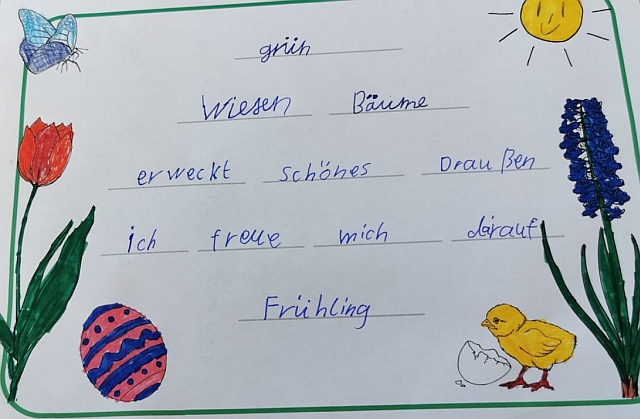 grün
Wiesen Bäume
erweckt schönes Draußen
ich freue mich darauf
Frühling